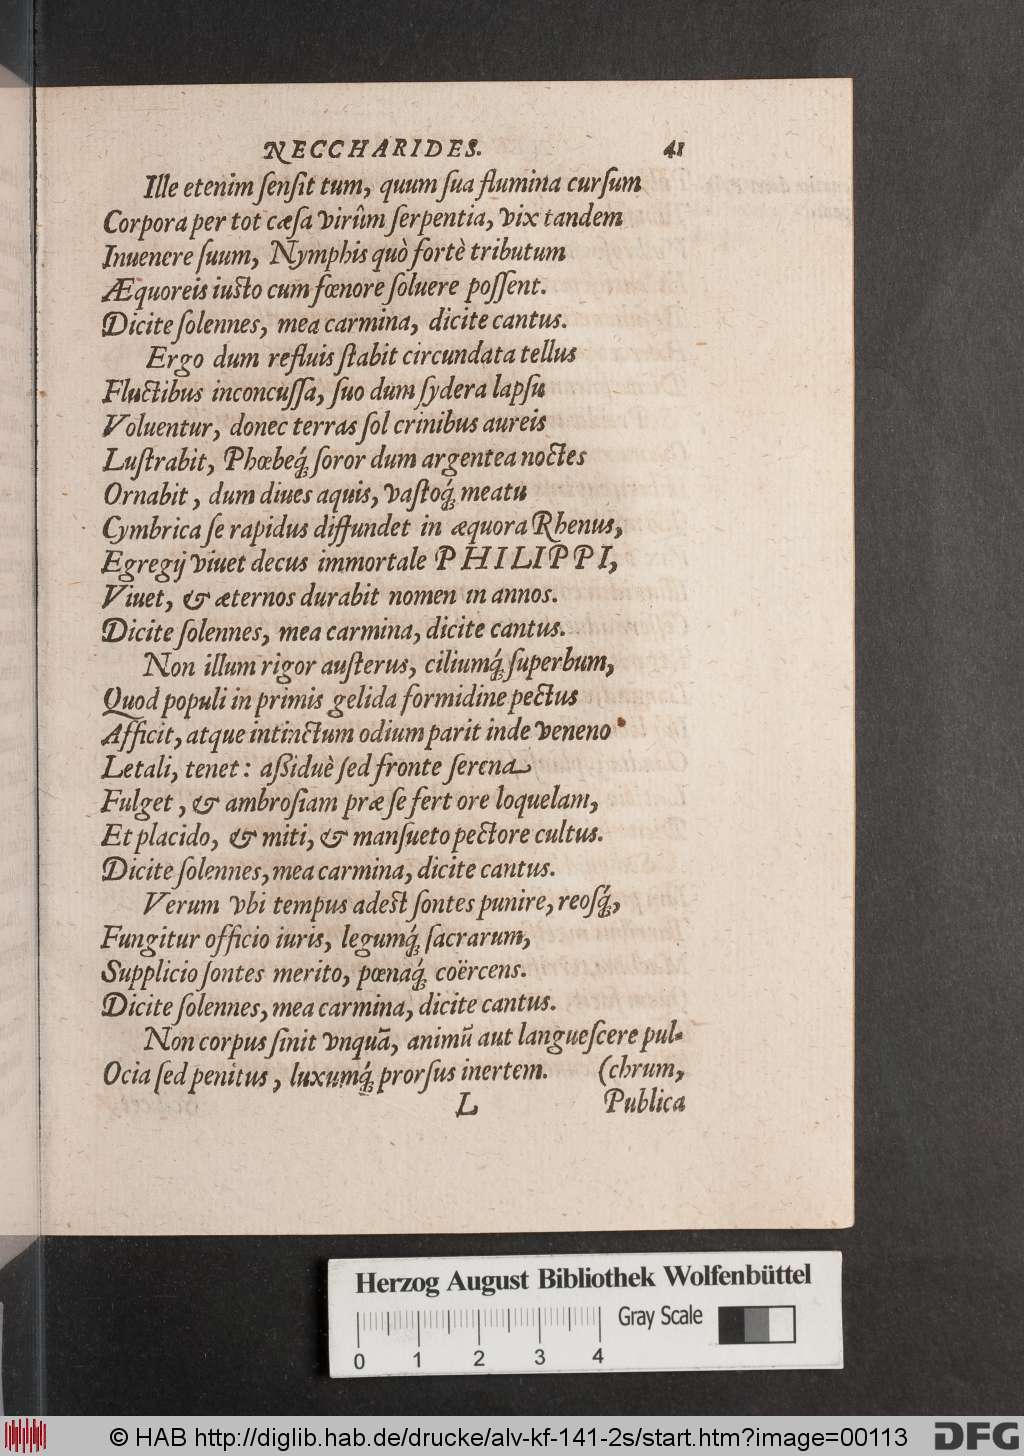 NECCHARIDES. 41
Ille etenim ſenſit tum, quum ſua flumina curſum
Corpora per tot cæſa virûm ſerpentia, vix tandem
Inuenere ſuum, Nymphis quò fortè tributum
Æquoreis iusto cum fœnore ſoluere poſſent.
Dicite ſolennes, mea carmina, dicite cantus.
Ergo dum refluis ſtabit circundata tellus
Fluctibus inconcuſſa, ſuo dum ſydera lapſu
Voluentur, donec terras ſol crinibus aureis
Luſtrabit, Phœbeq́; ſoror dum argentea noctes
Ornabit, dum diues aquis, vaſtoq́; meatu
Cymbrica ſe rapidus diffundet in æquora Rhenus,
Egregij viuet decus immortale PHILIPPI,
Viuet, & æternos durabit nomen in annos.
Dicite ſolennes, mea carmina, dicite cantus.
Non illum rigor auſterus, ciliumq́; ſuperbum,
Quod populi in primis gelida formidine pectus
Afficit, atque intinctum odium parit inde veneno
Letali, tenet: aßiduè ſed fronte ſerena
Fulget, & ambroſiam præ ſe fert ore loquelam,
Et placido, & miti, & manſueto pectore cultus.
Dicite ſolennes, mea carmina, dicite cantus.
Verum vbi tempus adest ſontes punire, reoſq́;,
Fungitur officio iuris, legumq́; ſacrarum,
Supplicio ſontes merito, pœnaq́; coërcens.
Dicite ſolennes, mea carmina, dicite cantus.
Non corpus ſinit vnquã, animũ aut langueſcere pul-
Ocia ſed penitus, luxumq́; prorſus inertem. (chrum,
L Publica
Herzog August Bibliothek Wolfenbüttel
Gray Scale
0 1 2 3 4
© HAB http://diglib.hab.de/drucke/alv-kf-141-2s/start.htm?image=00113
DFG